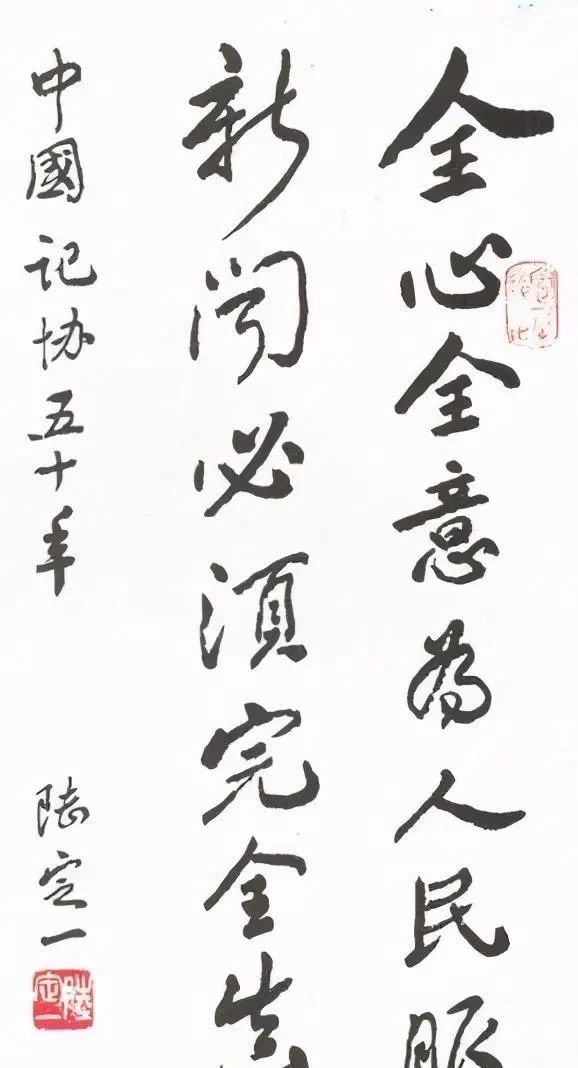 全心全意為人民服
新聞必須完全
中國记协五十年
陸定一
陸定一